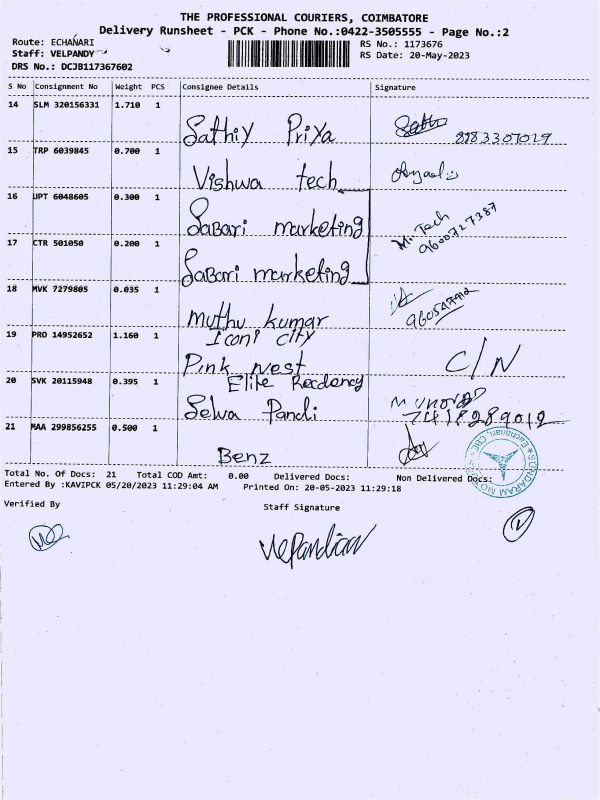 THE PROFESSIONAL COURIERS, COIMBATORE
Delivery Runsheet - PCK - Phone No.:0422-3505555 - Page No.:2
Route: ECHANARI
RS No.: 1173676
Staff: VELPANDY
RS Date: 20-May-2023
DRS No.: DCJB117367602
S No Consignment No Weight PCS Consignee Details Signature
14 SLM 320156331 1.710 1
Sathiy Priya 8883307029
15 TRP 6039845 0.700 1
Vishwa tech
16 UPT 6048605 0.300 1
Sabari marketing M. Tech
9600727387
17 CTR 501050 0.200 1
Sabari marketing
18 MVK 7279805 0.035 1
Muthu kumar
19 PRD 14952652 1.160 1
Iconi City
Pink nest C/N
20 SVK 20115948 0.395 1
Elite Recdency
Selva Pandi 7418289012
21 MAA 299856255 0.500 1
Benz
SUNDARAM MO
Eachanari, CBE
Total No. Of Docs: 21 Total COD Amt: 0.00 Delivered Docs: Non Delivered Docs:
Entered By :KAVIPCK 05/20/2023 11:29:04 AM Printed On: 20-05-2023 11:29:18
Verified By
Staff Signature
Velpandian